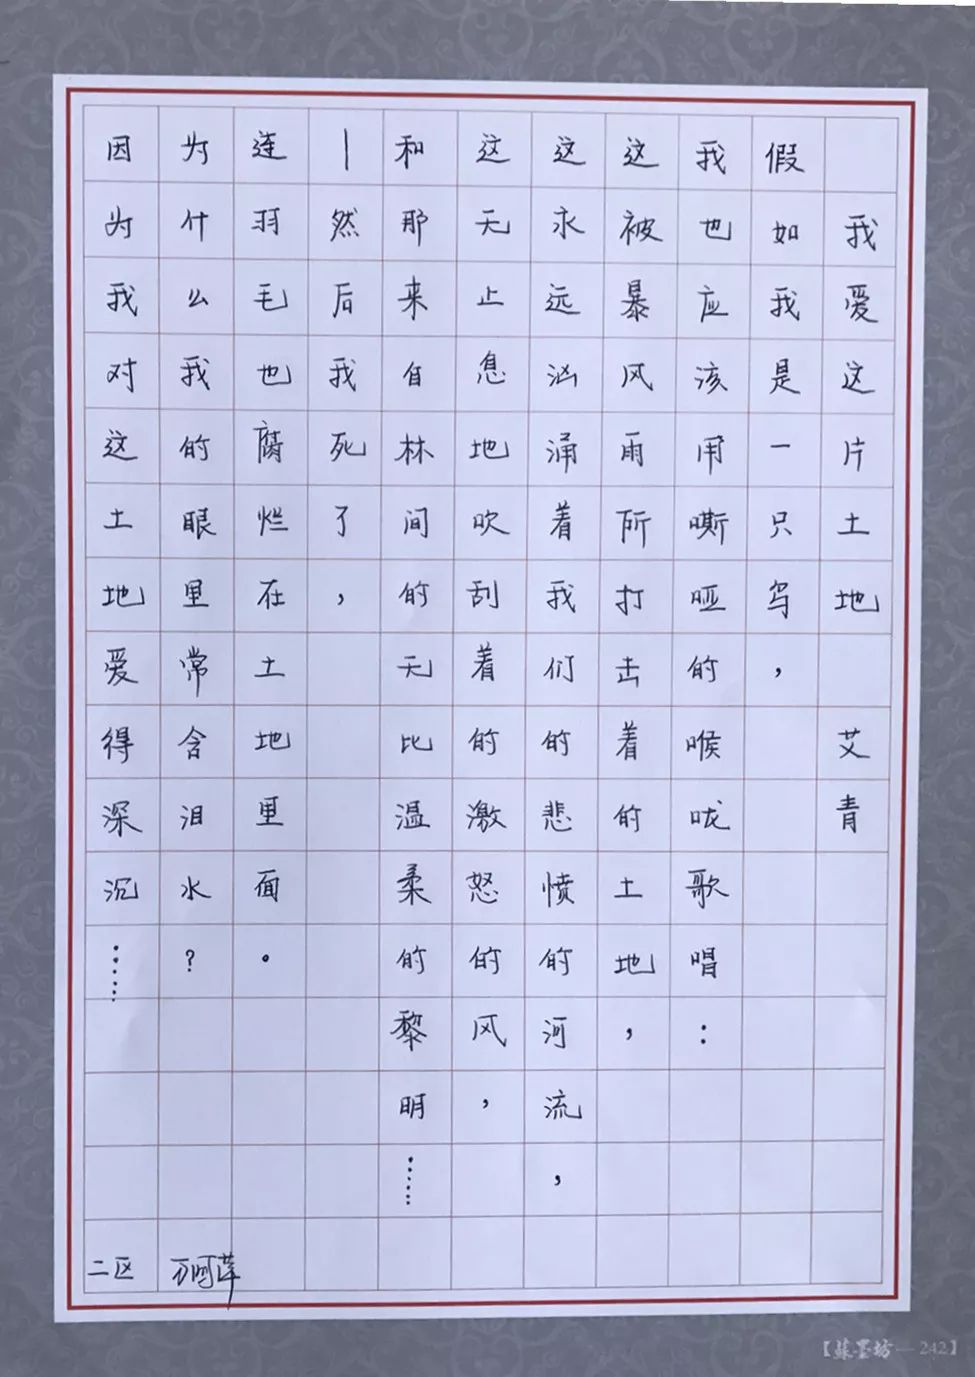 我爱这片土地 艾青
假如我是一只鸟，
我也应该用嘶哑的喉咙歌唱：
这被暴风雨所打击着的土地，
这永远汹涌着我们的悲愤的河流，
这无止息地吹刮着的激怒的风，
和那来自林间的无比温柔的黎明……
—然后我死了，
连羽毛也腐烂在土地里面。
为什么我的眼里常含泪水？
因为我对这土地爱得深沉……
二区
【蘇墨坊—242】